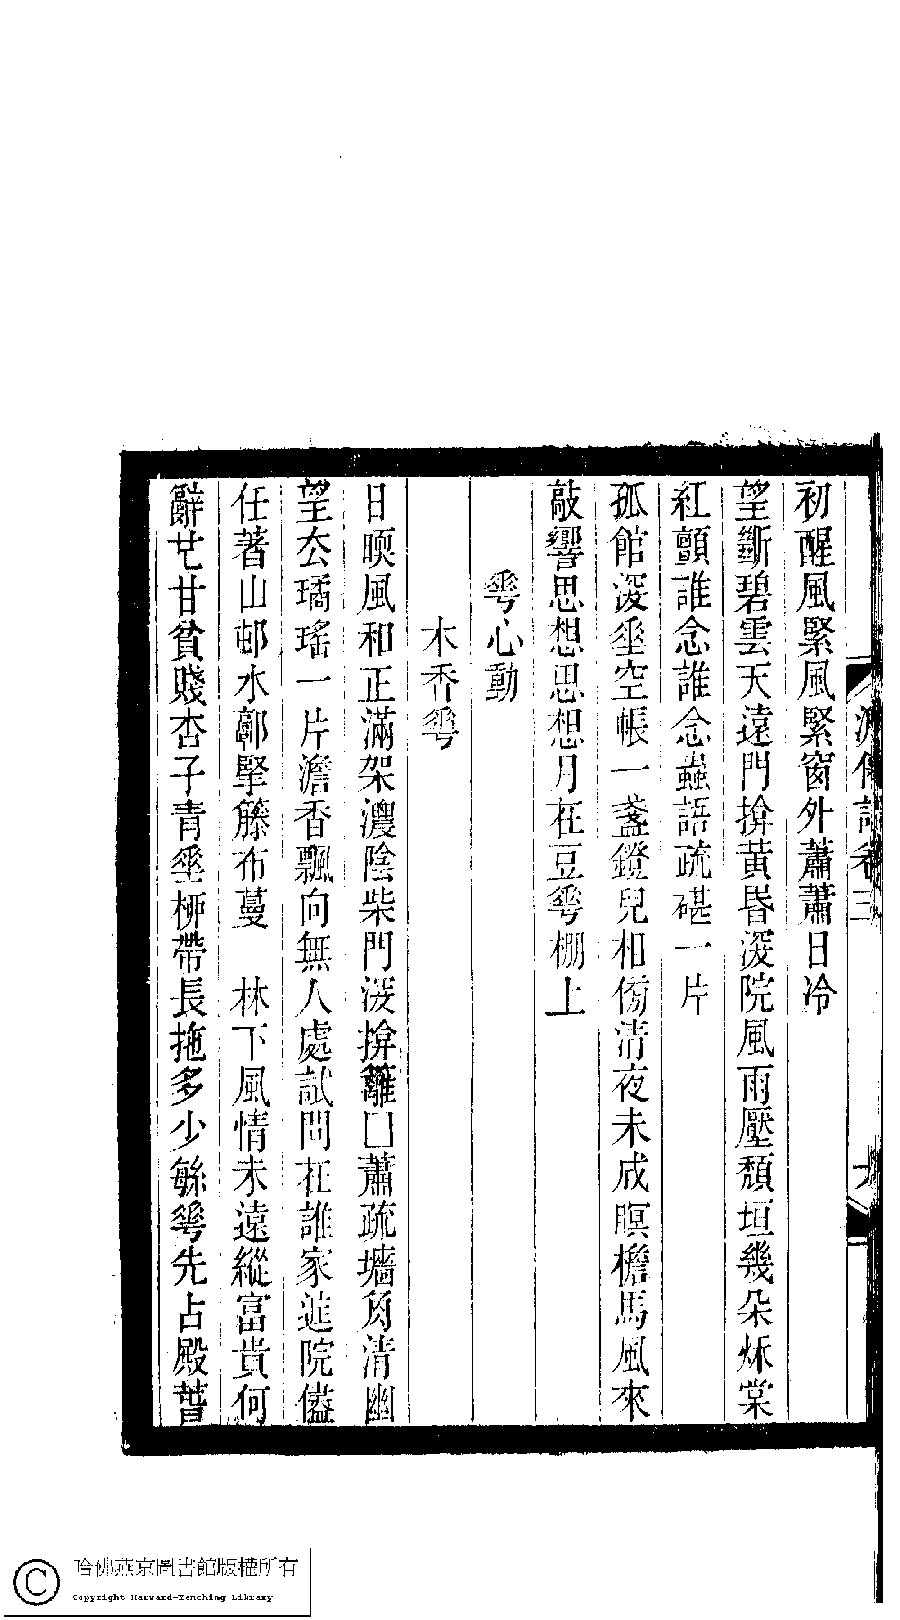 初醒風緊風緊窗外蕭蕭日冷
望斷碧雲天遠門揜黃昏深院風雨壓頹垣幾朵秌棠
紅顫誰念誰念蟲語疏碪一片
孤館深垂空帳一盞鐙兒相傍清夜未成瞑檐馬風來
敲響思想思想月在豆蕚棚上
蕚心動
木香蕚
日㬉風和正滿架濃陰柴門深揜籬口蕭疏墻角清幽
望去璚瑤一片澹香飄向無人處試問在誰家進院儘
任著山邨水鄣牽籐布蔓　林下風情未遠縱富貴何
辭也甘貧賤杏子青垂柳帶長拖多少緐蕚先占殿替
卷三
哈佛燕京圖書館版權所有
Copyright Harvard-Yenching Library